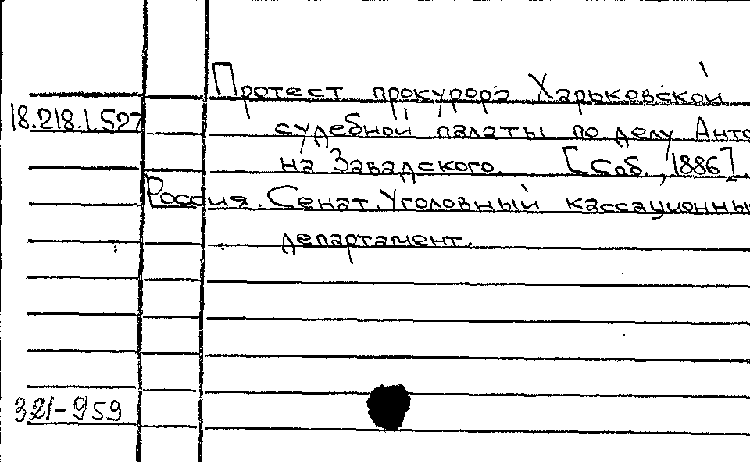 Протест прокурора Харьковской
18.218.1.527
судебной палаты по делу Анто
на Завадского. [Спб, 1886].
Россия. Сенат. Уголовный кассационный
департамент.
321-959